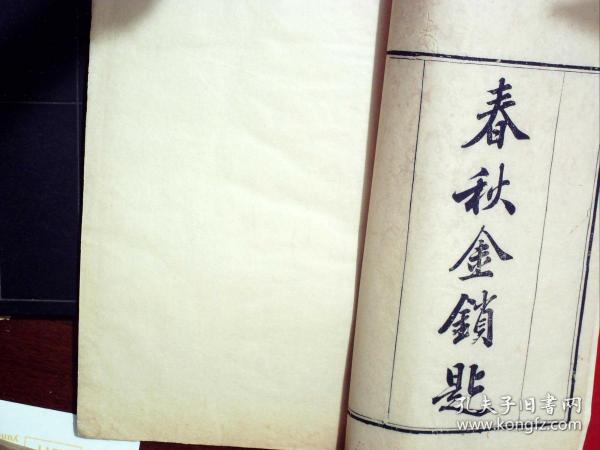 春秋金鎖匙
孔夫子旧书网
www.kongfz.com